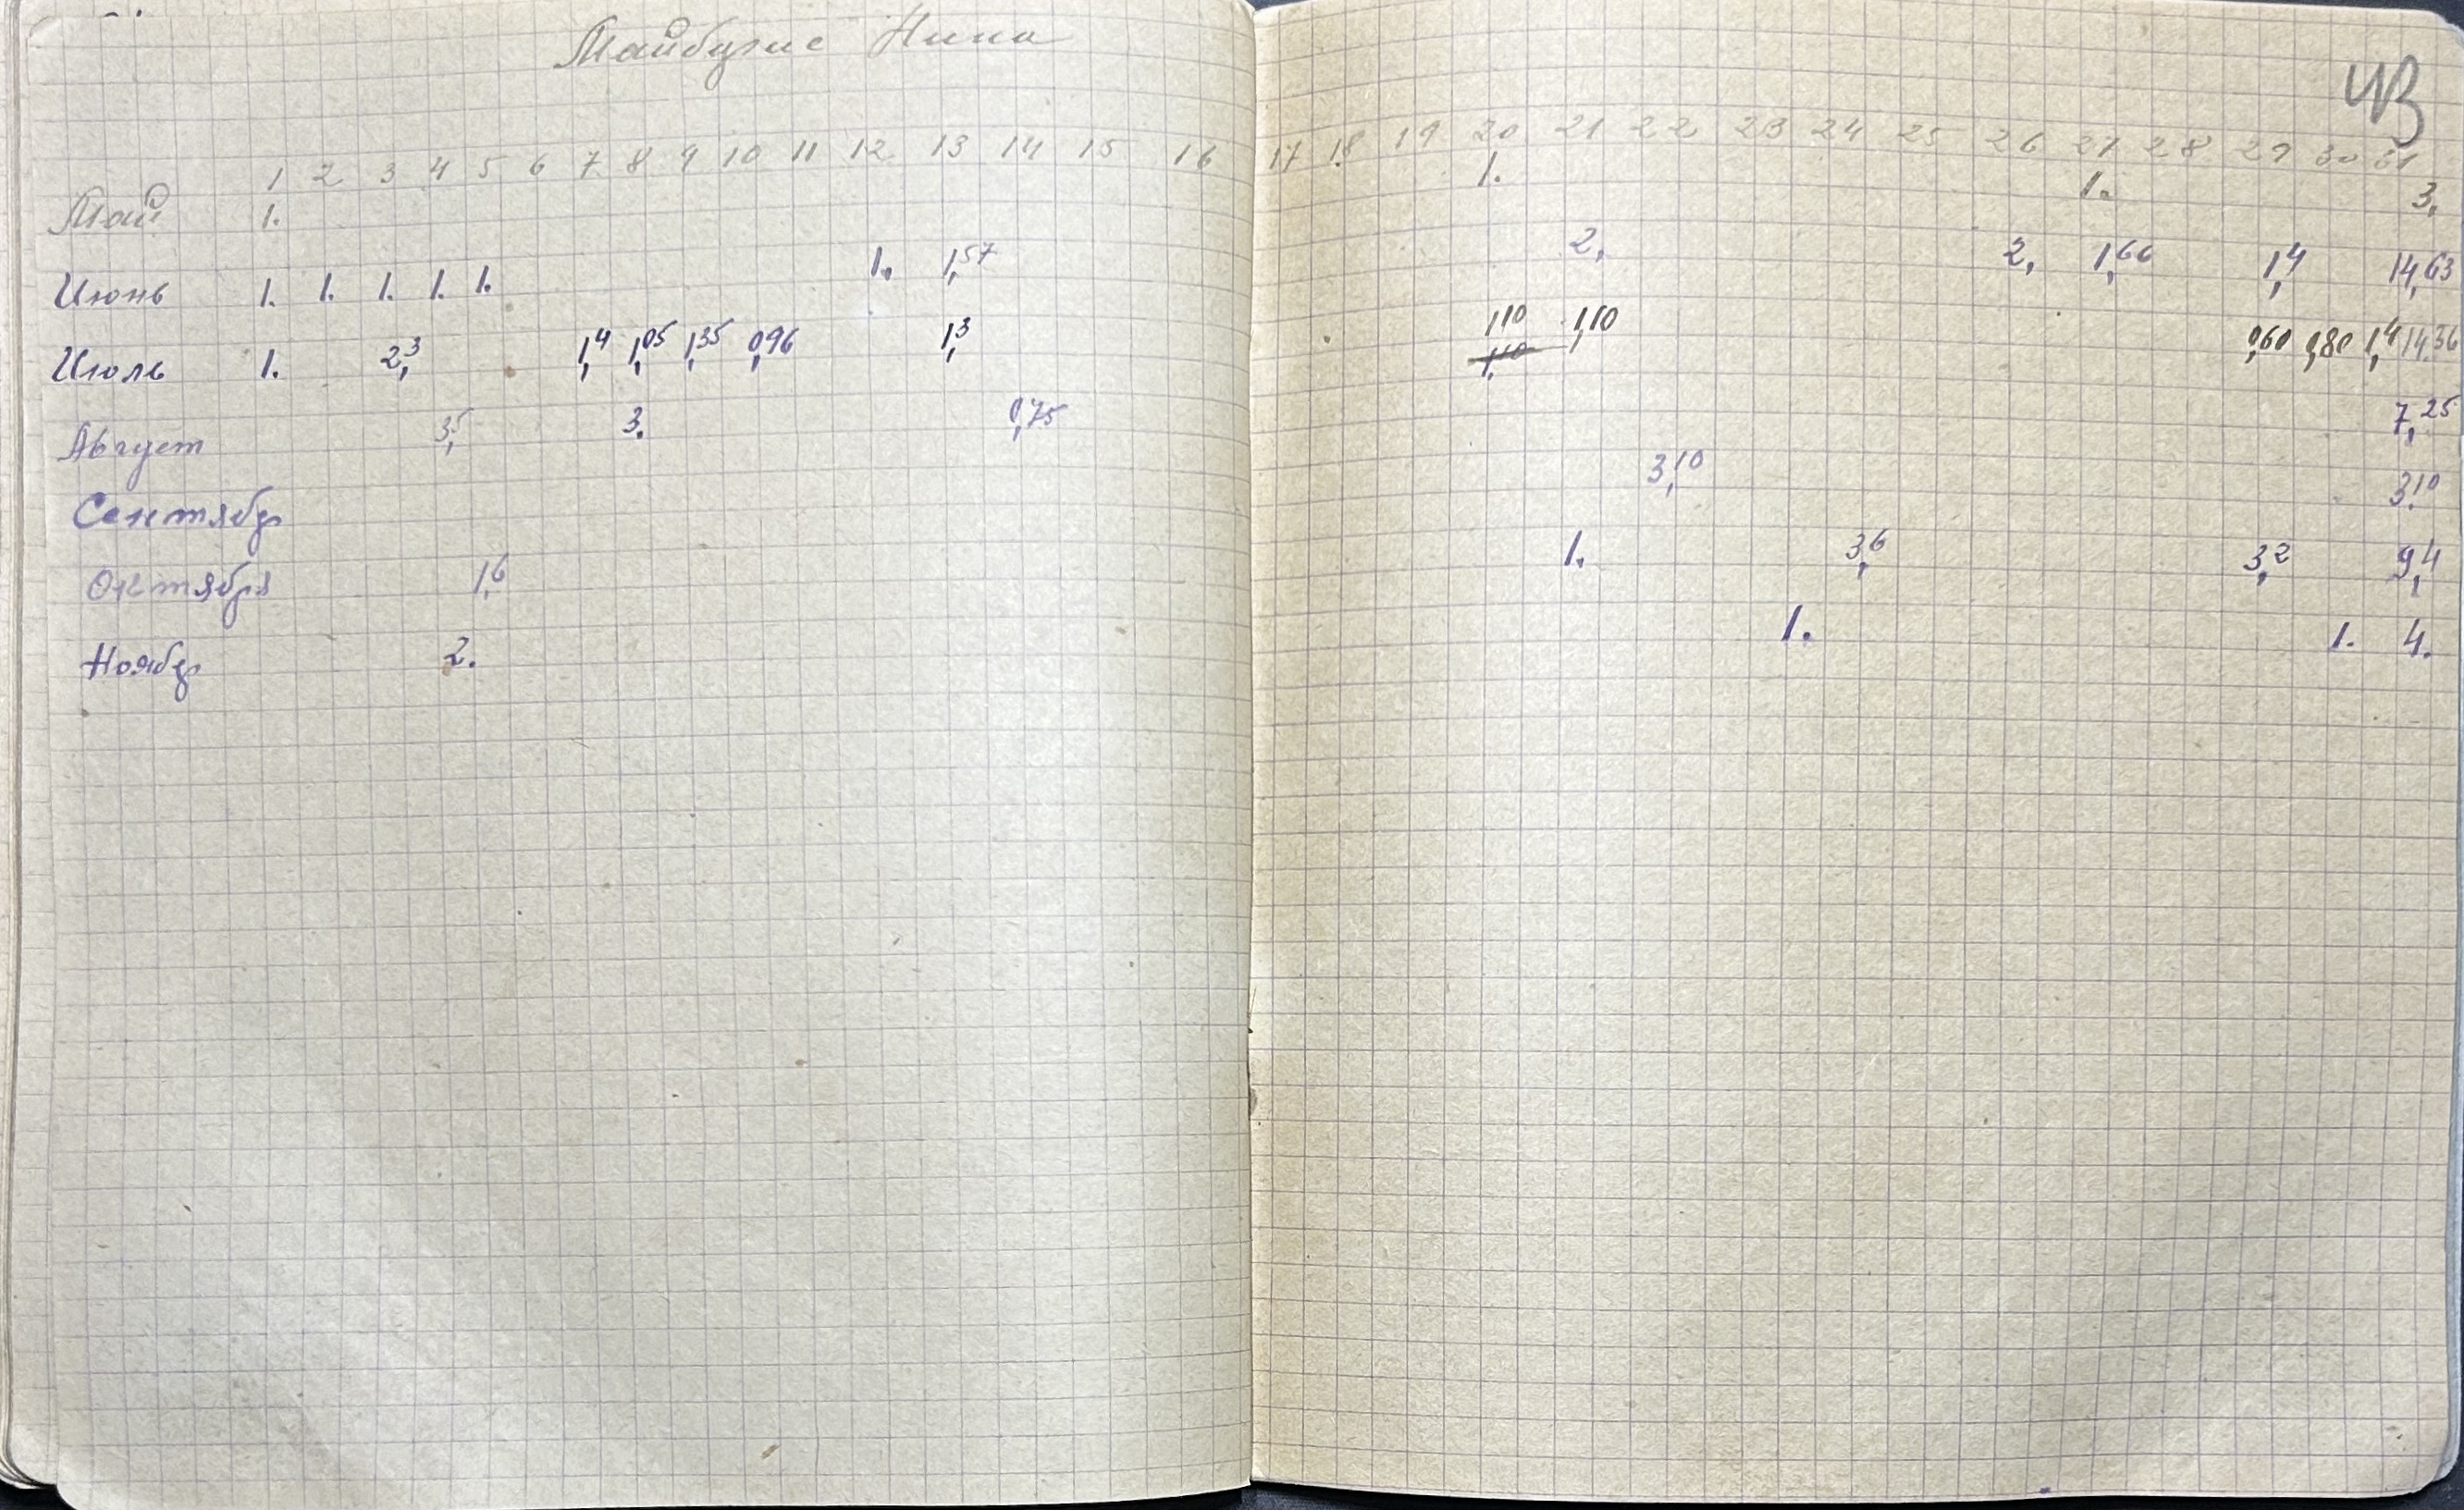 Майбузис Нина
43
1 2 3 4 5 6 7 8 9 10 11 12 13 14 15 16 17 18 19 20 21 22 23 24 25 26 27 28 29 30 31
Май 1. 1. 1. 3,
Июнь 1. 1. 1. 1. 1. 1. 1,57 2, 2, 1,66 1,4 14,63
Июль 1. 2,3 1,4 1,05 1,35 0,96 1,3 1,10 1,10 1,10 0,60 0,80 1,4 14.36
Август 3,5 3. 0,75 7,25
Сентябр 3,10 3.10
Октября 1,6 1. 3,6 3,2 9,4
Ноябр 2. 1. 1. 4.